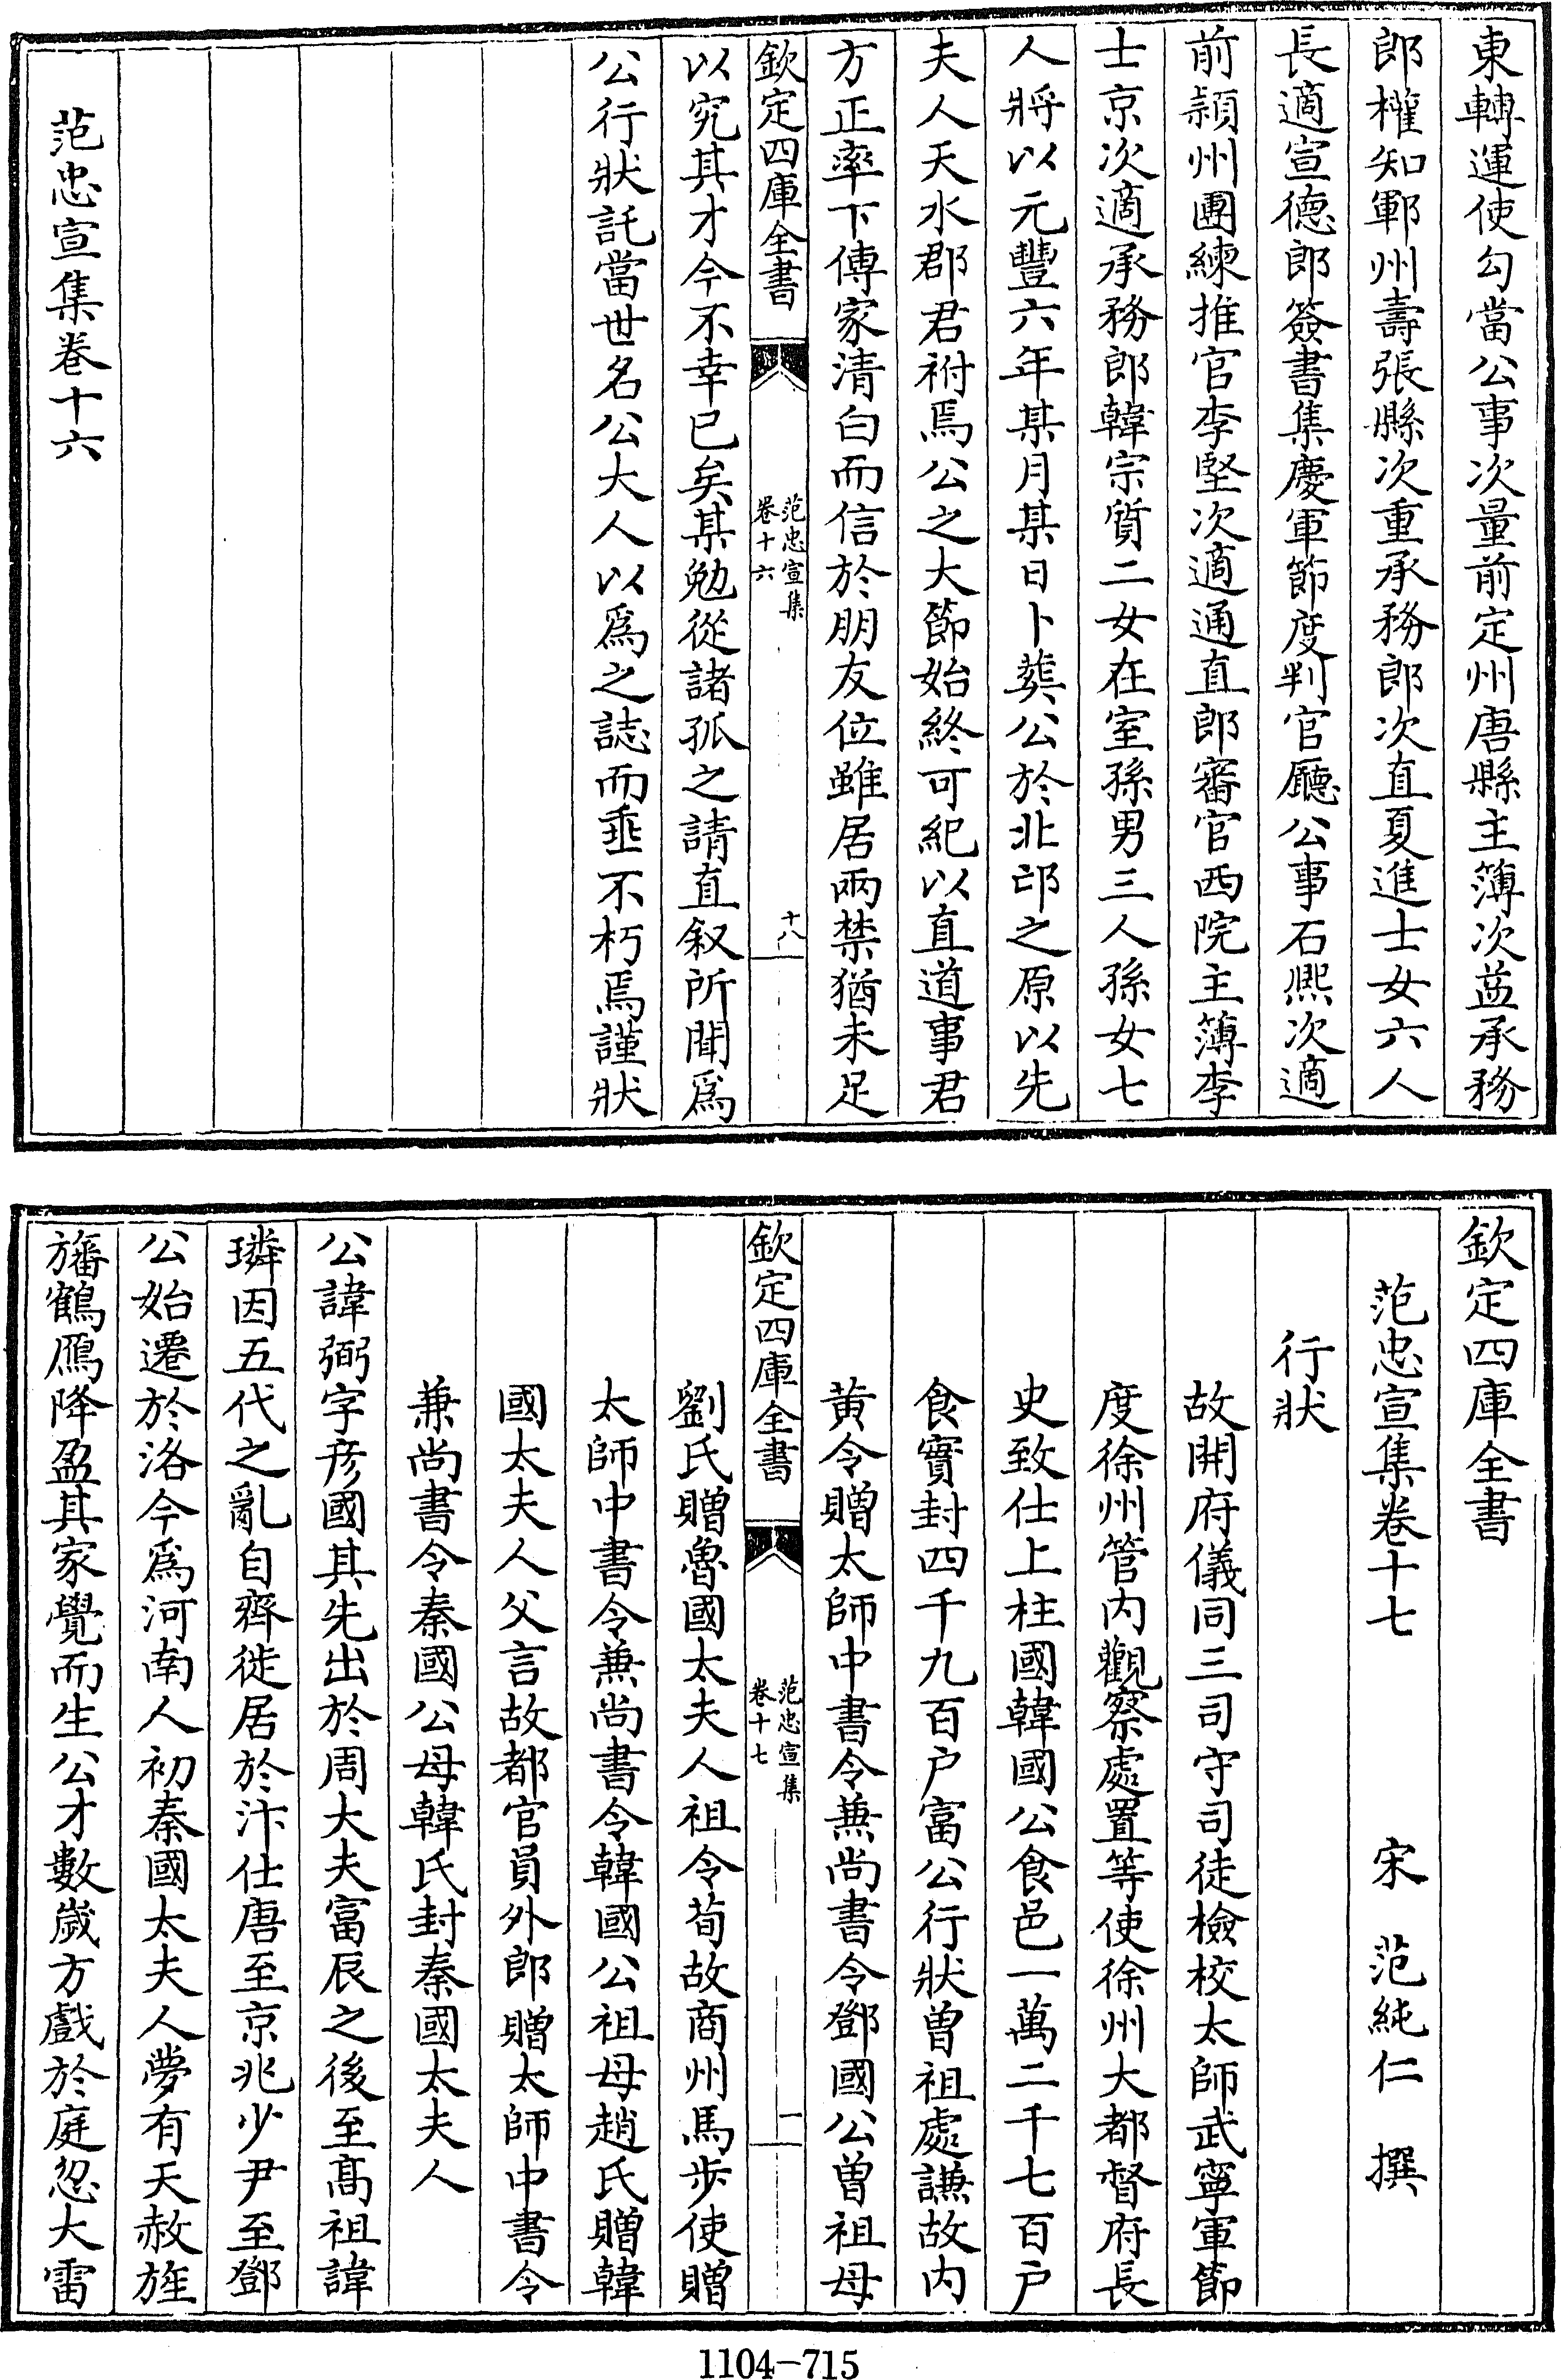 東轉運使勾當公事次量前定州唐縣主簿次益承務
郎權知鄆州壽張縣次重承務郎次直夏進士女六人
長適宣德郎簽書集慶軍節度判官廳公事石熙次適
前潁州團練推官李堅次適通直郎審官西院主簿李
士京次適承務郎韓宗質二女在室孫男三人孫女七
人將以元豐六年某月某日卜葬公於北邙之原以先
夫人天水郡君祔焉公之大節始終可紀以直道事君
方正率下傅家清白而信於朋友位雖居兩禁猶未足
欽定四庫全書
范忠宣集
卷十六
十八
以究其才今不幸已矣某勉從諸孤之請直叙所聞爲
公行狀託當世名公大人以爲之誌而垂不朽焉謹狀
范忠宣集卷十六
欽定四庫全書
范忠宣集卷十七
宋 范純仁 撰
行狀
故開府儀同三司守司徒檢校太師武寧軍節
度徐州管内觀察處置等使徐州大都督府長
史致仕上柱國韓國公食邑一萬二千七百户
食實封四千九百户富公行狀曾祖處謙故内
黄令贈太師中書令兼尚書令鄧國公曾祖母
欽定四庫全書
范忠宣集
卷十七
一
劉氏贈魯國太夫人祖令荀故商州馬步使贈
太師中書令兼尚書令韓國公祖母趙氏贈韓
國太夫人父言故都官員外郎贈太師中書令
兼尚書令秦國公母韓氏封秦國太夫人
公諱弼字彦國其先出於周大夫富辰之後至髙祖諱
璘因五代之亂自齊徙居於汴仕唐至京兆少尹至鄧
公始遷於洛今爲河南人初秦國太夫人夢有天赦旌
旛鶴鴈降盈其家覺而生公才數歲方戲於庭忽大雷
1104-715